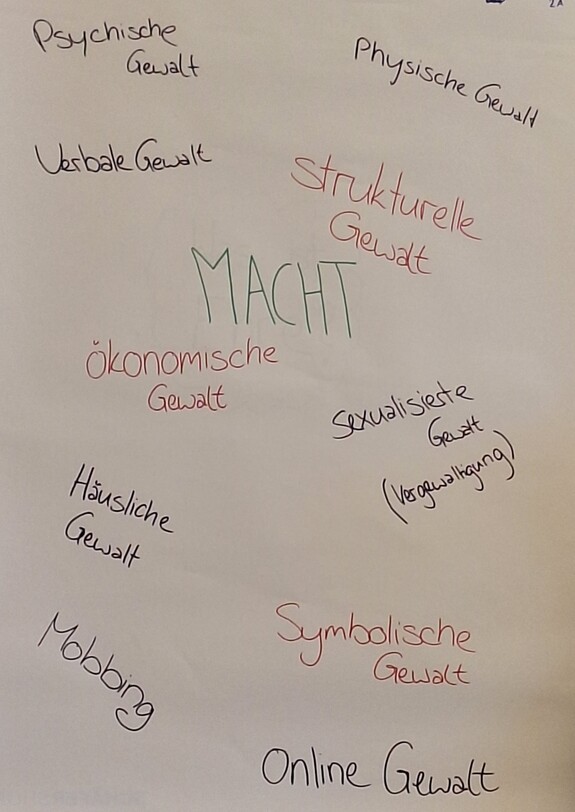 Psychische
Gewalt
Physische Gewalt
Verbale Gewalt
Strukturelle
Gewalt
MACHT
Ökonomische
Gewalt
Sexualisierte
Gewalt
(Vergewaltigung)
Häusliche
Gewalt
Mobbing
Symbolische
Gewalt
Online Gewalt